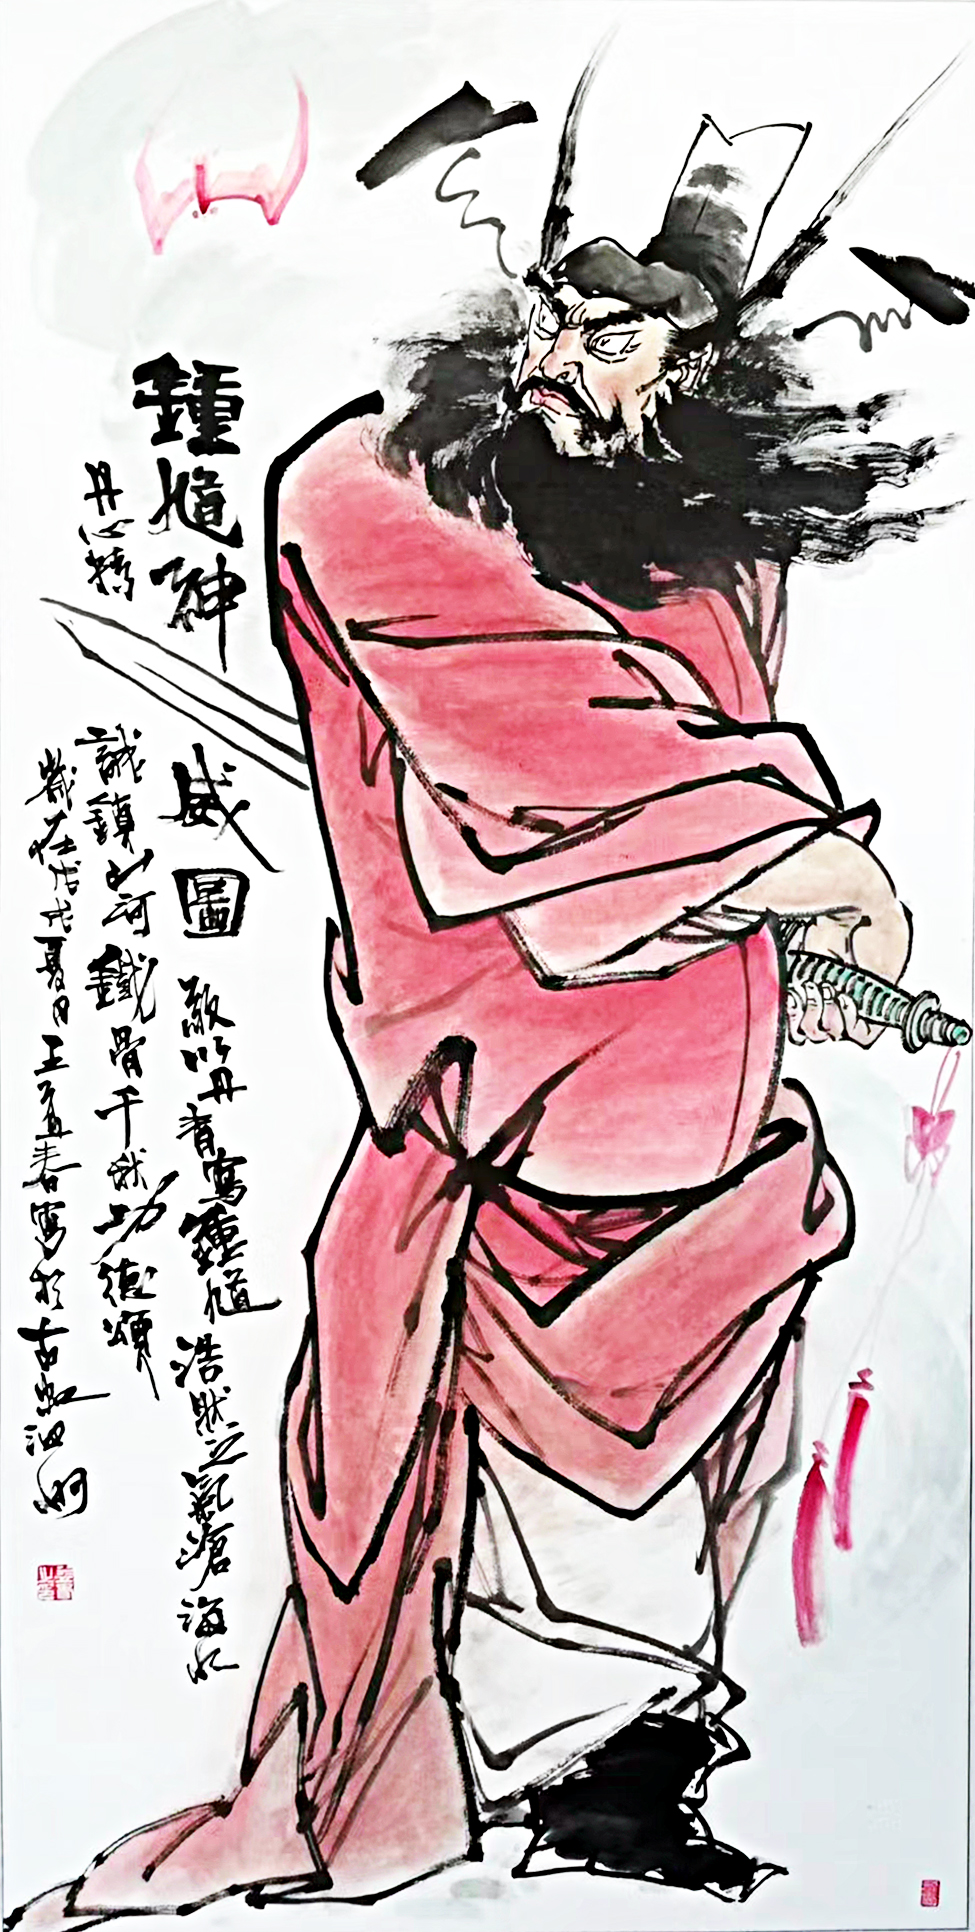 鍾馗神威圖
敬以丹青寫鍾馗浩然之氣滄海水
丹心精誠鎮山河鐵骨千秋功德頌
歲在戊戌夏月王宜春寫於古虹汴河